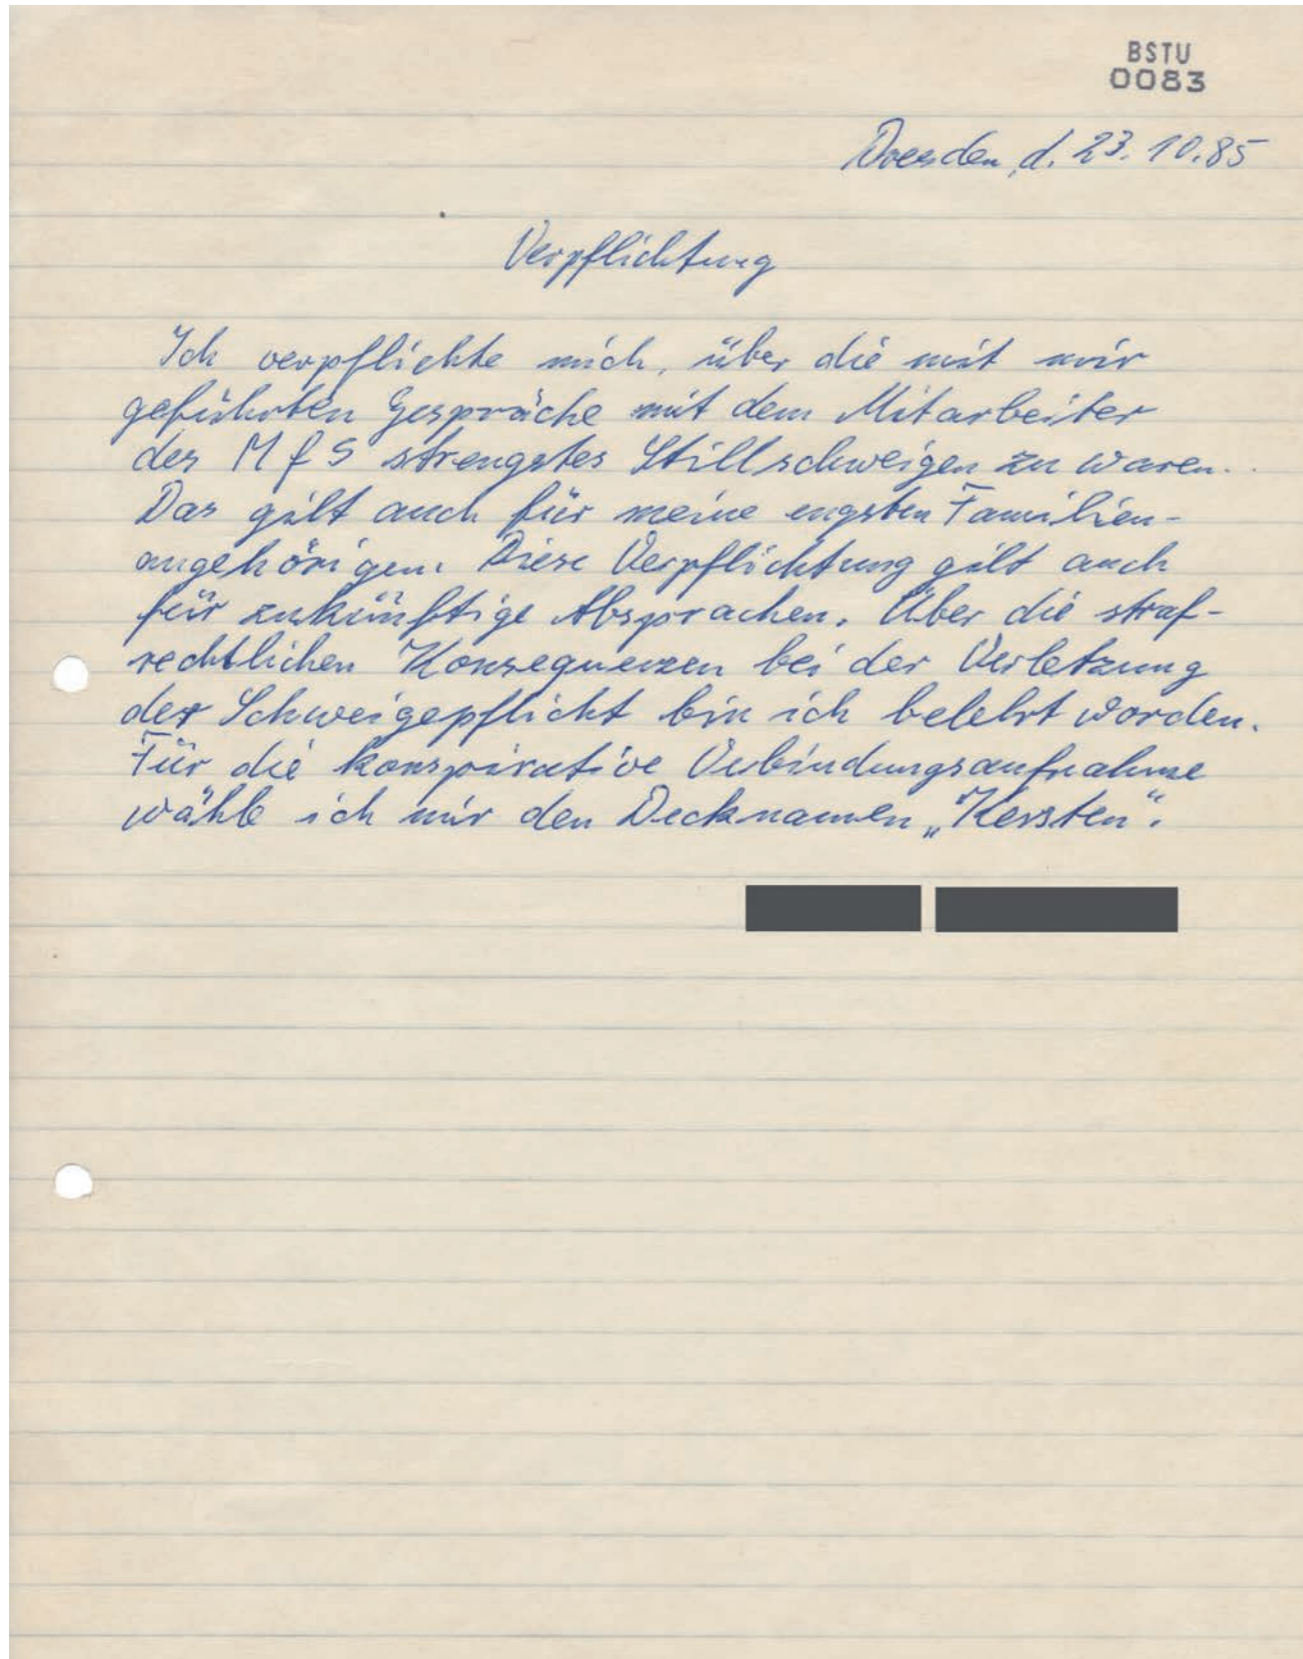 BSTU
0083
Dresden, d. 23.10.85
Verpflichtung
Ich verpflichte mich, über die mit mir
geführten Gespräche mit dem Mitarbeiter
des MfS strengstes Stillschweigen zu waren.
Das gilt auch für meine engsten Familien-
angehörigen. Diese Verpflichtung gilt auch
für zukünftige Absprachen. Über die straf-
rechtlichen Konsequenzen bei der Verletzung
der Schweigepflicht bin ich belehrt worden.
Für die konspirative Verbindungsaufnahme
wähle ich mir den Decknamen „Kersten“.